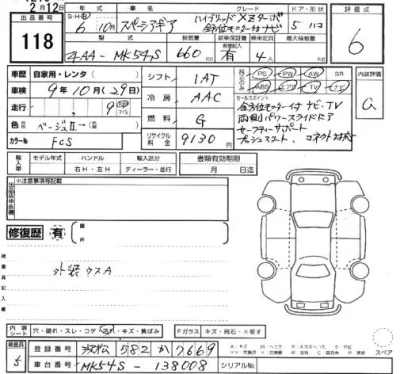 2月12日
出品番号 118
S・H・R 年式 6 10月 車名 スペーシアギア グレード ハイブリッドXZターボ 全方位モニター付ナビ ドア・形状 5 ハコ 評価点 6
型式 4AA-MK54S 排気量 660cc 新車保証書 有 記入 乗車定員 4人 最大積載量
車歴 自家用・レンタ
車検 9年10月(29日)
走行 9
色 ベージュII
カラーNo. FCS
シフト 1AT
冷房 AAC
燃料 G
リサイクル料金 9130円
PS PW AW SR
ABS エアB TV ナビ
内装評価 a
セールスポイント
全方位モニター付 ナビ・TV
両側パワースライドドア
セーフティサポート
プッシュスタート コネクト対応
輸入車 モデル年式 ハンドル 右H・左H 輸入区分 ディーラー・並行 書類有効期限 月 日迄
※注意事項等記載
修復歴 有 無
検査員記入欄
外装ウスA
内装シート 穴・破れ・スレ・コゲ 汚れ・キズ・黄ばみ Fガラス キズ・飛石・×要す
スペア
検査員 5
登録番号 582 か 7669
車台番号 MK54S-138008 シリアルNo.